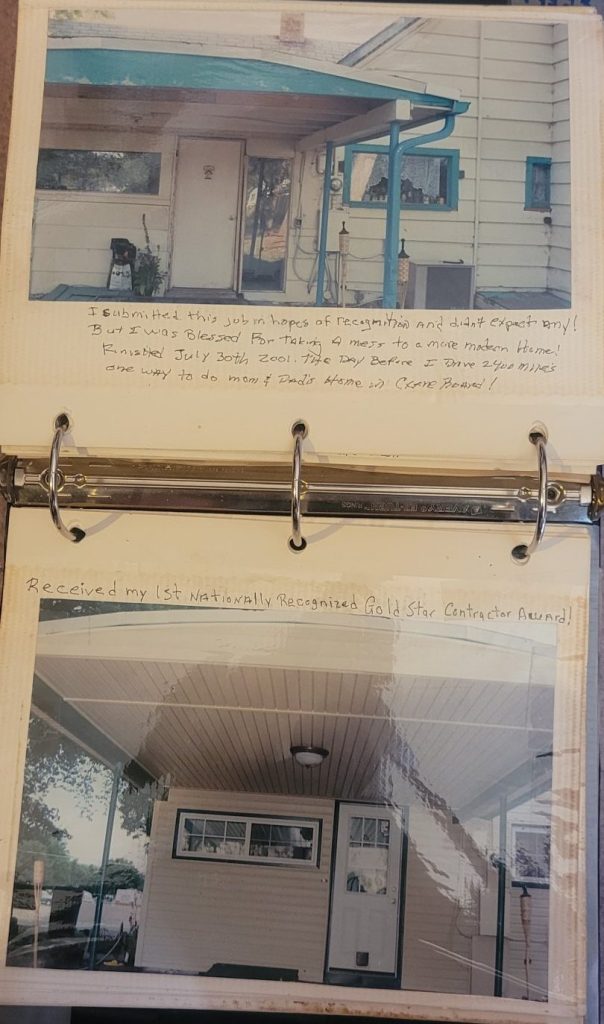 I submitted this job in hopes of recognition and didn't expect any!
But I was Blessed For taking A mess to a more modern Home!
Finished July 30th 2001. The Day Before I Drove 2400 miles
one way to do mom & Dad's Home in Crane Board!
Received my 1st Nationally Recognized Gold Star Contractor Award!